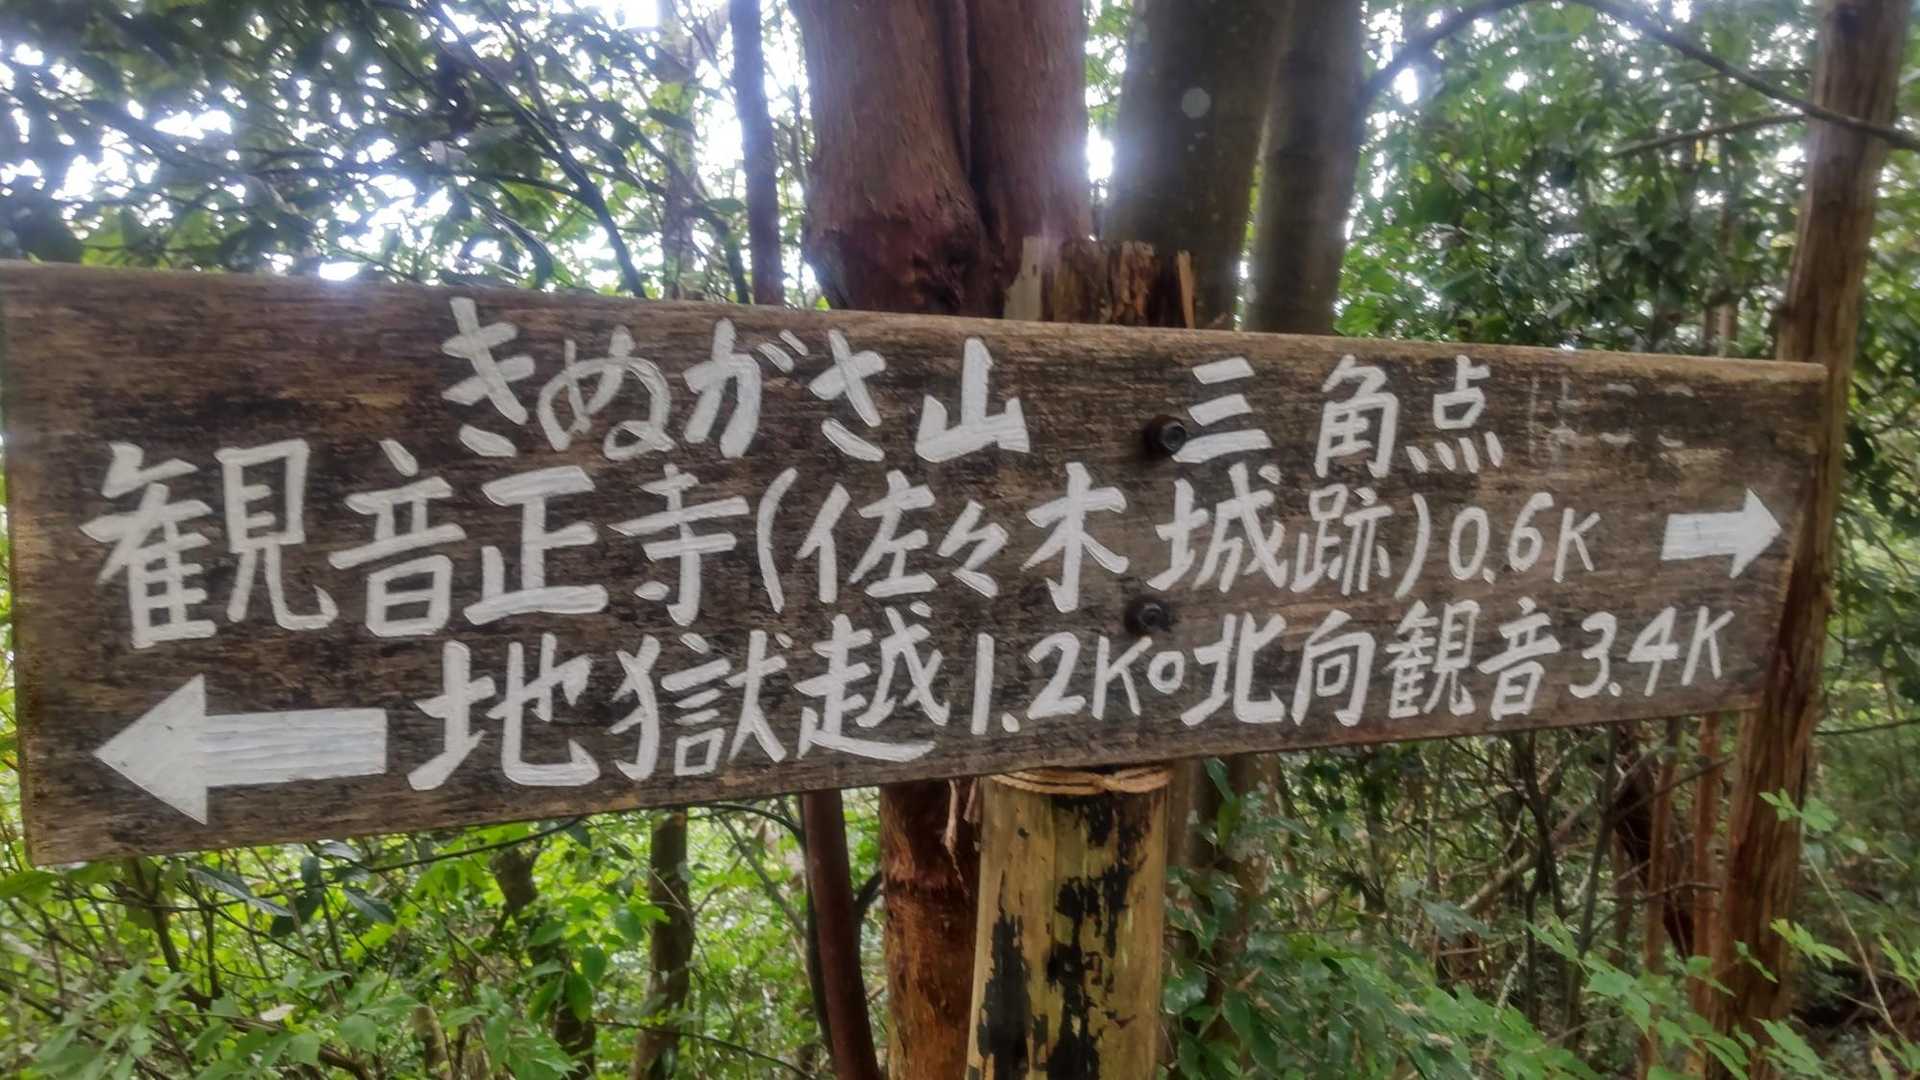 きぬがさ山 三角点
観音正寺(佐々木城跡)0.6K
地獄越1.2K。北向観音3.4K